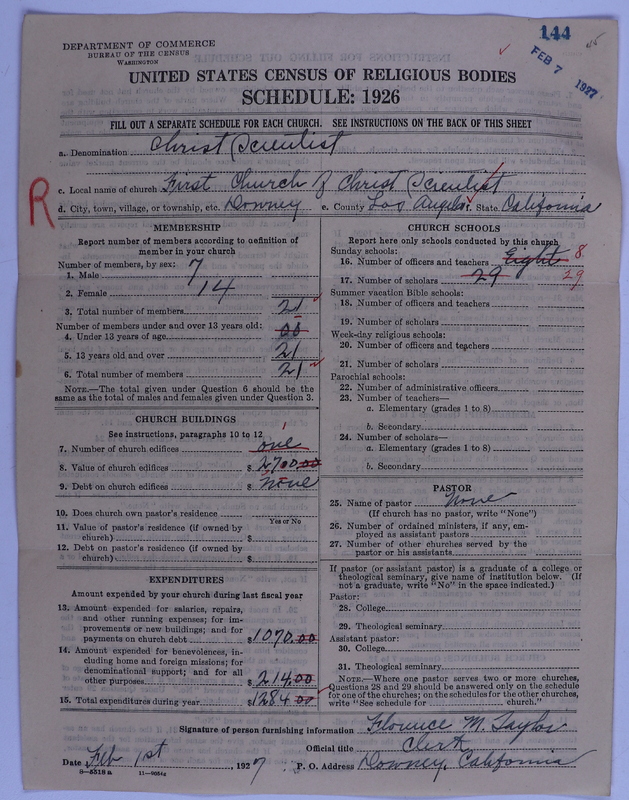 144
FEB 7 1927
DEPARTMENT OF COMMERCE
BUREAU OF THE CENSUS
WASHINGTON
UNITED STATES CENSUS OF RELIGIOUS BODIES
SCHEDULE: 1926
FILL OUT A SEPARATE SCHEDULE FOR EACH CHURCH. SEE INSTRUCTIONS ON THE BACK OF THIS SHEET
a. Denomination Christ Scientist
c. Local name of church First Church of Christ Scientist
R
d. City, town, village, or township, etc. Downey e. County Los Angeles f. State California
MEMBERSHIP
Report number of members according to definition of
member in your church
Number of members, by sex:
1. Male 7
2. Female 14
3. Total number of members 21
Number of members under and over 13 years old:
4. Under 13 years of age 00
5. 13 years old and over 21
6. Total number of members 21
NOTE.—The total given under Question 6 should be
same as the total of males and females given under Question 3.
CHURCH BUILDINGS
See instructions, paragraphs 10 to 12
7. Number of church edifices one 1
8. Value of church edifices $2700.00
9. Debt on church edifices $ None
10. Does church own pastor's residence
Yes or No
11. Value of pastor's residence (if owned by
church) $
12. Debt on pastor's residence (if owned by
church) $
EXPENDITURES
Amount expended by your church during last fiscal year
13. Amount expended for salaries, repairs,
and other running expenses; for im-
provements or new buildings; and for
payments on church debt $1070.00
14. Amount expended for benevolences, in-
cluding home and foreign missions; for
denominational support; and for all
other purposes $214.00
15. Total expenditures during year $1284.00
CHURCH SCHOOLS
Report here only schools conducted by this church
Sunday schools:
16. Number of officers and teachers Eight 8
17. Number of scholars 29 29
Summer vacation Bible schools:
18. Number of officers and teachers
19. Number of scholars
Week-day religious schools:
20. Number of officers and teachers
21. Number of scholars
Parochial schools:
22. Number of administrative officers
23. Number of teachers—
a. Elementary (grades 1 to 8)
b. Secondary
24. Number of scholars—
a. Elementary (grades 1 to 8)
b. Secondary
PASTOR
25. Name of pastor None
(If church has no pastor, write "None")
26. Number of ordained ministers, if any, em-
ployed as assistant pastors
27. Number of other churches served by the
pastor or his assistants
If pastor (or assistant pastor) is a graduate of a college or
theological seminary, give name of institution below. (If
not a graduate, write "No" in the space indicated.)
Pastor:
28. College
29. Theological seminary
Assistant pastor:
30. College
31. Theological seminary
NOTE.—Where one pastor serves two or more churches,
Questions 28 and 29 should be answered only on the schedule
for one of the churches; on the schedules for the other churches,
write "See schedule for church."
Signature of person furnishing information Florence M. Taylor
Official title Clerk
Date Feb 1st, 1927 P. O. Address Downey, California
8—5518 a 11—9054